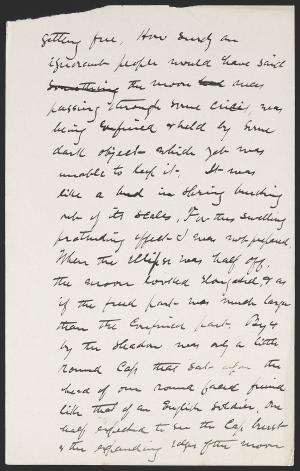 getting free. How surely an
ignorant people would have said
something the moon had was
passing through some crisis, was
being confined & held by some
dark object which yet was
unable to keep it. It was
like a bud in spring bursting
out of its scales. For this swelling
protruding effect I was not prepared.
When the ellipse was half off,
the moon looked elongated, & as
if the freed part was much larger
than the confined part.
by the shadow was only a little
round cap that sat upon the
head of our round faced friend
like that of an English soldier. One
half expected to see the cap burst
& the expanding edges of the moon